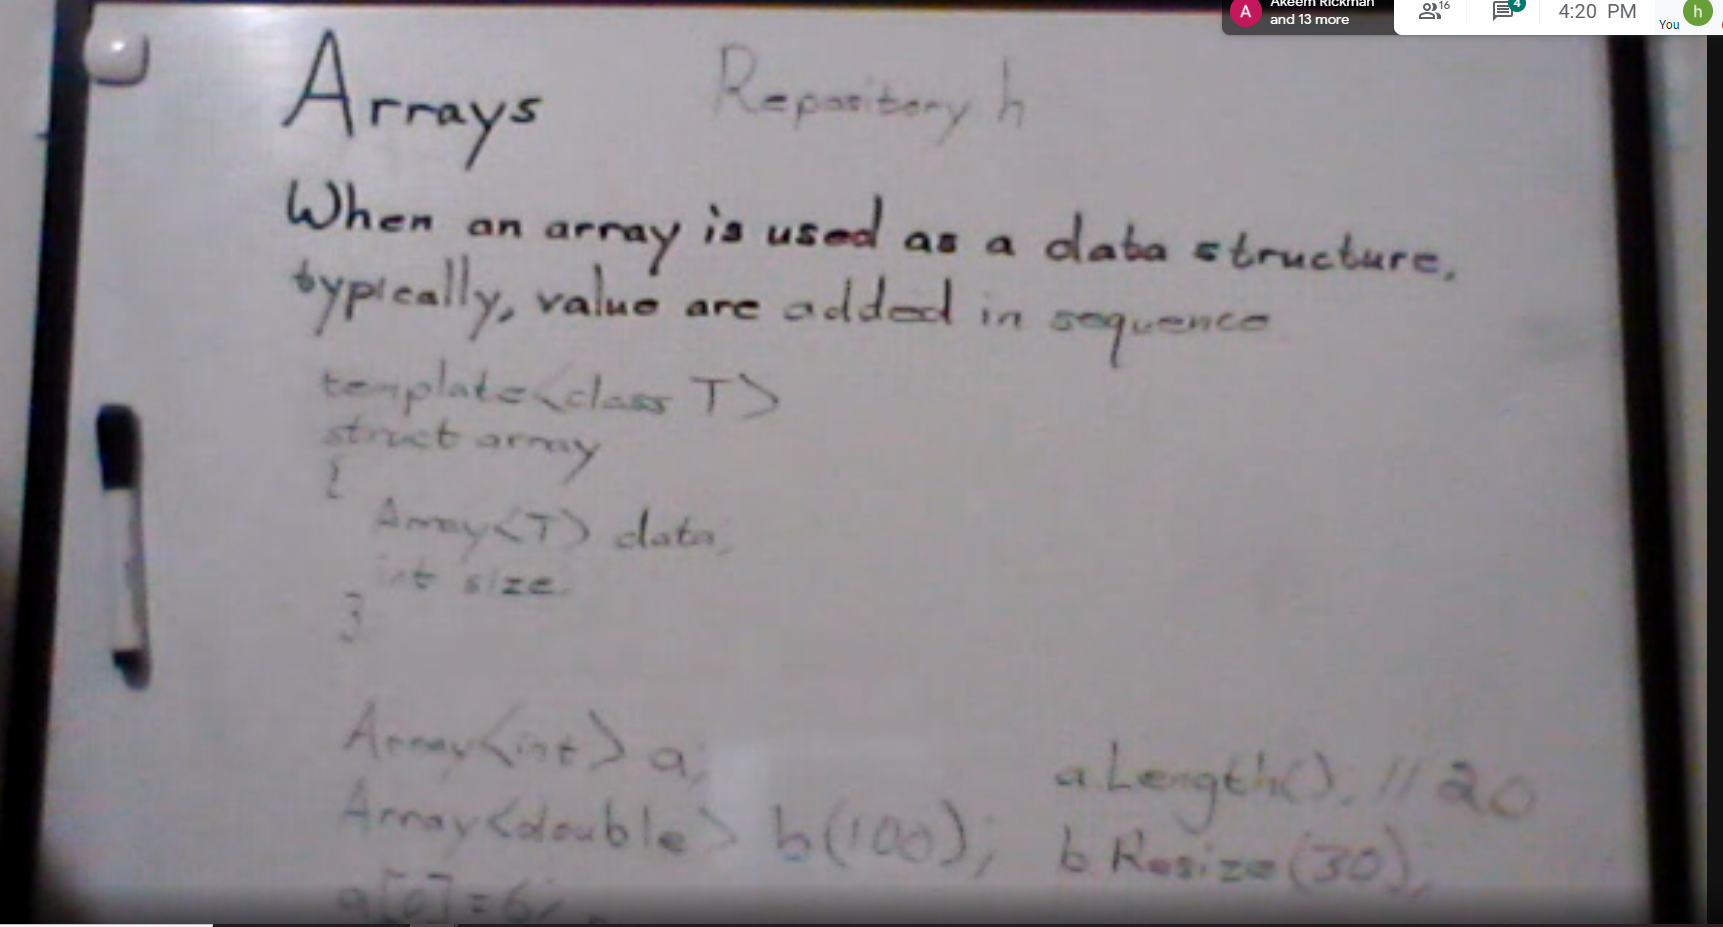 Akeem Rickman
and 13 more
A
16
4
4:20 PM
You
h
Arrays
Repository h
When an array is used as a data structure,
typically, value are added in sequence
template<class T>
struct array
{
Array<T> data;
int size;
}
Array<int> a;
Array<double> b(100);
a[0]=6;
a.Length(); // 20
b.Resize(30);